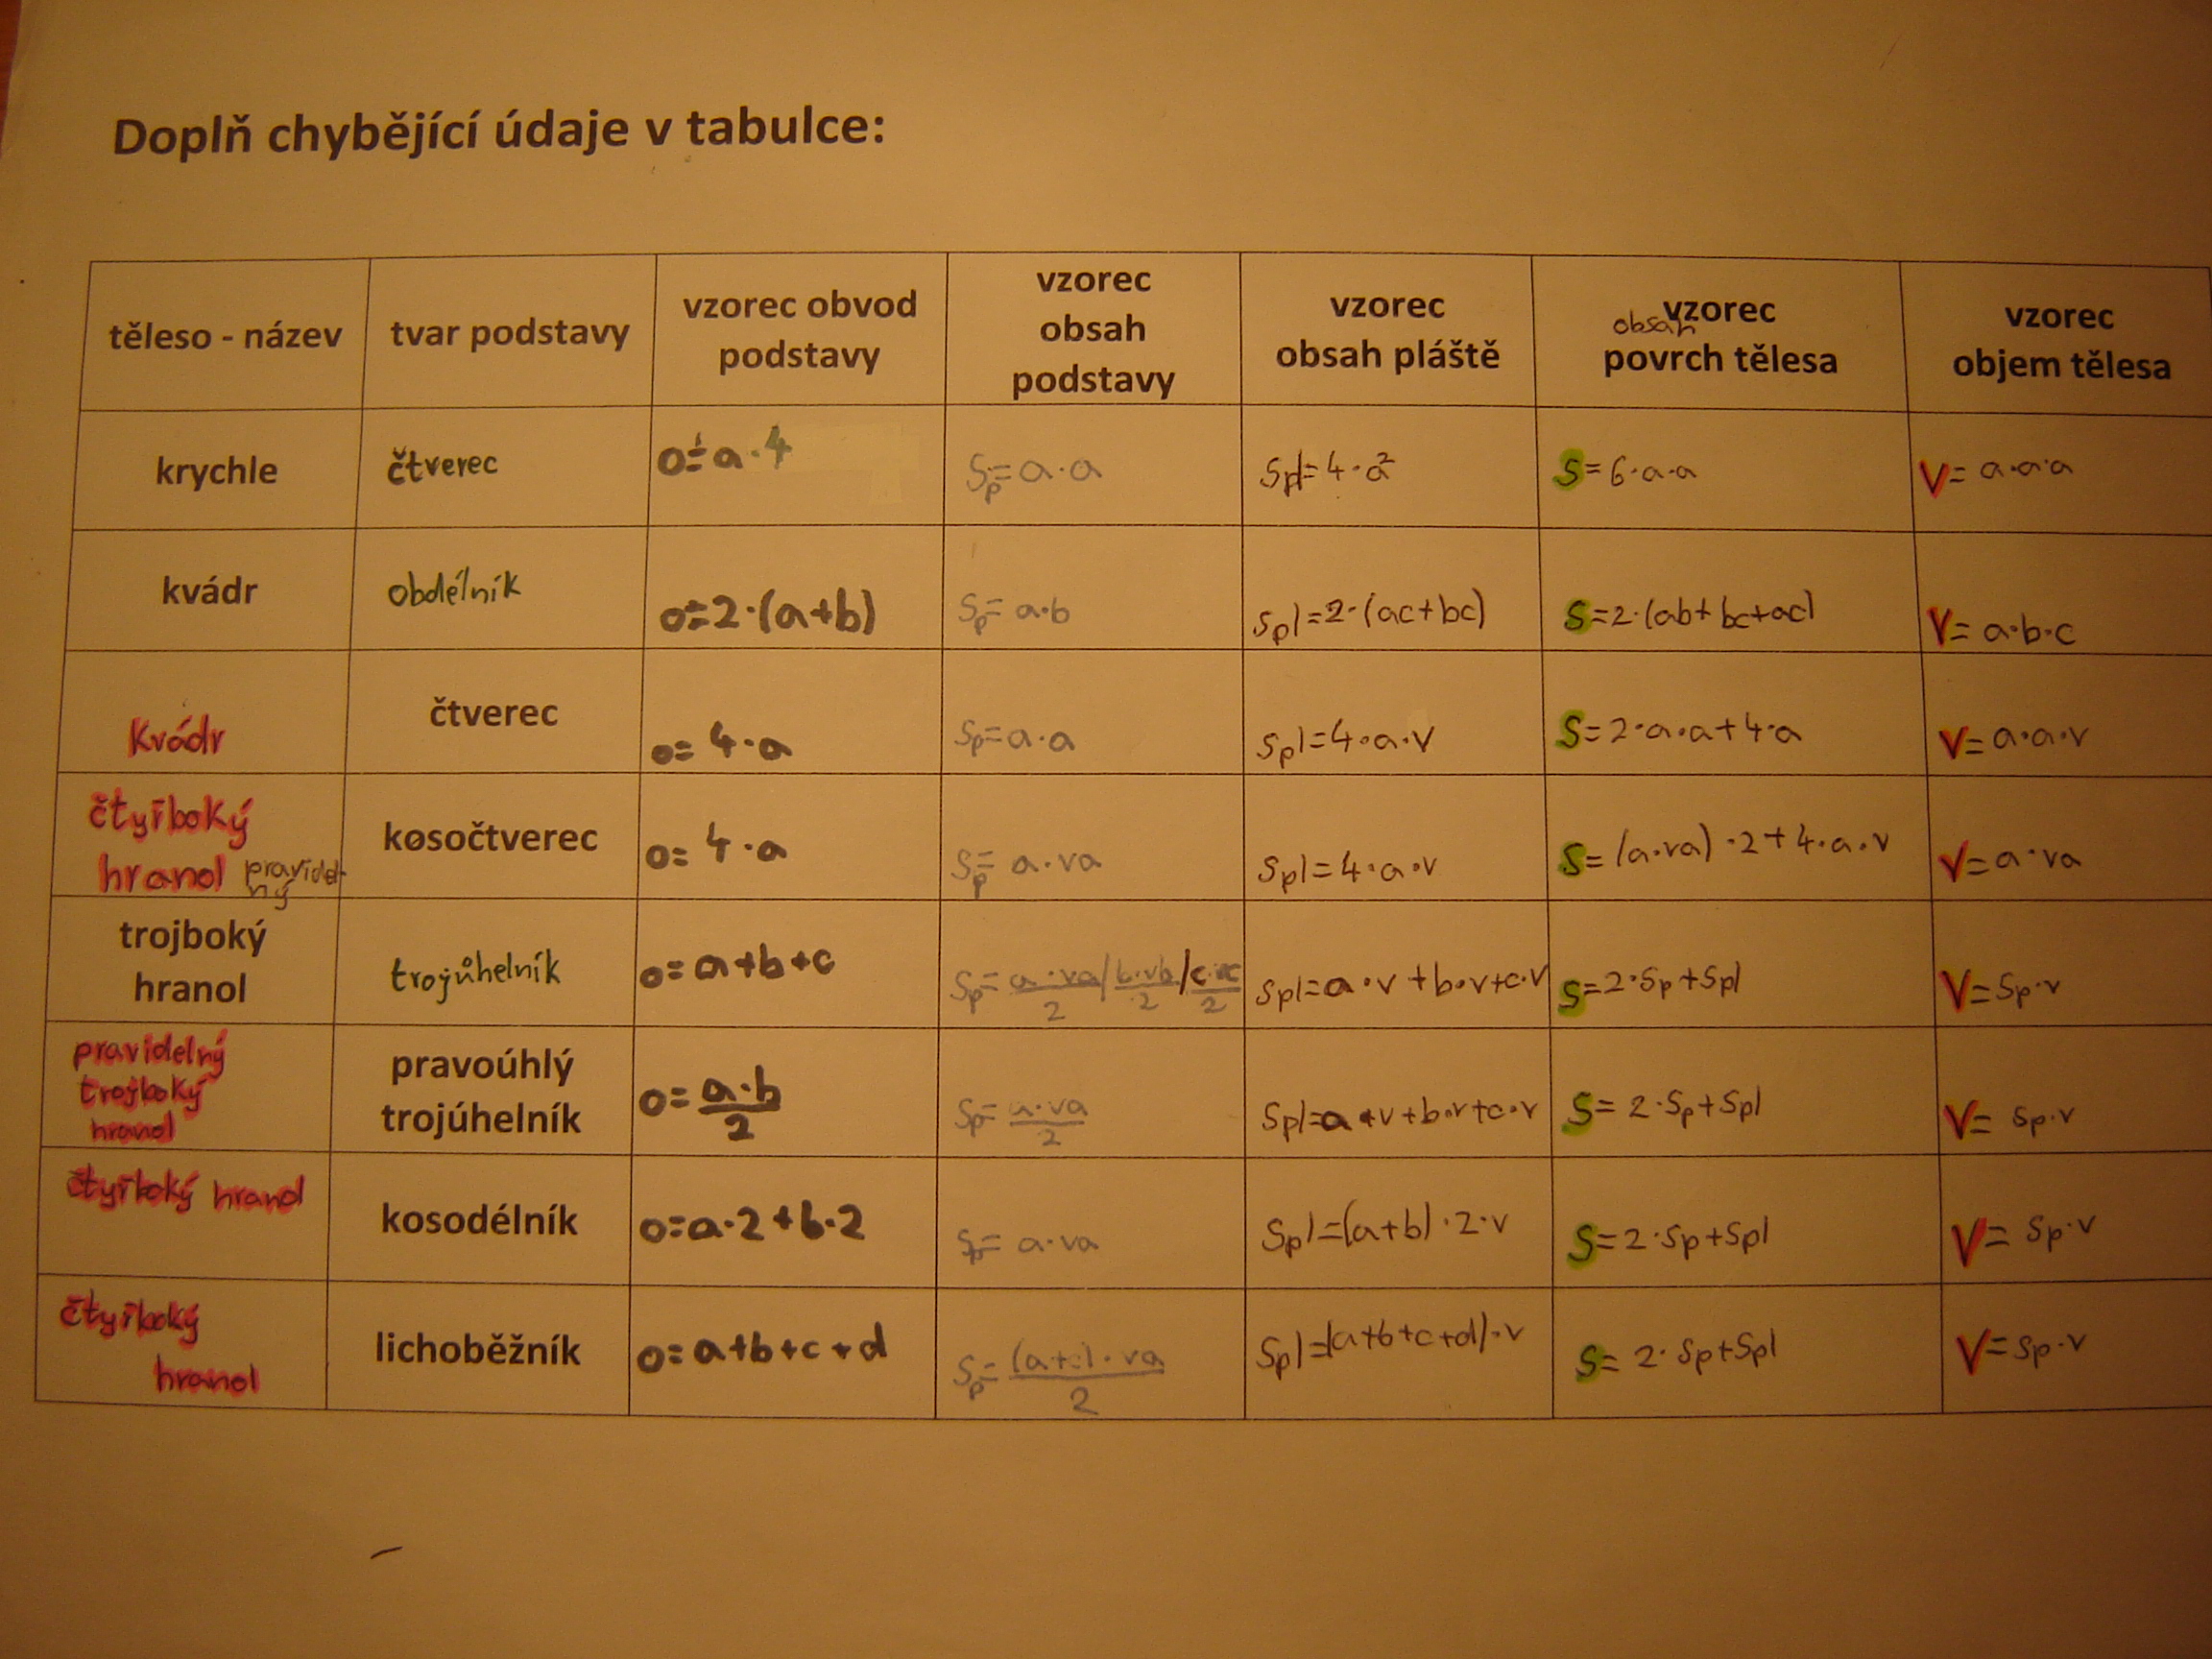 Doplň chybějící údaje v tabulce:
těleso - název
tvar podstavy
vzorec obvod
podstavy
vzorec
obsah
podstavy
vzorec
obsah pláště
vzorec
obsah
povrch tělesa
vzorec
objem tělesa
krychle
čtverec
o=a·4
Sp=a·a
Spl=4·a²
S=6·a·a
V=a·a·a
kvádr
obdélník
o=2·(a+b)
Sp=a·b
Spl=2·(ac+bc)
S=2·(ab+bc+ac)
V=a·b·c
Kvádr
čtverec
o=4·a
Sp=a·a
Spl=4·a·v
S=2·a·a+4·a
V=a·a·v
čtyřboký
hranol pravidel
ný
kosočtverec
o=4·a
Sp=a·va
Spl=4·a·v
S=(a·va)·2+4·a·v
V=a·va
trojboký
hranol
trojúhelník
o=a+b+c
Sp=a·va/2 / b·vb/2 / c·vc/2
Spl=a·v+b·v+c·v
S=2·Sp+Spl
V=Sp·v
pravidelný
trojboký
hranol
pravoúhlý
trojúhelník
o=a·b/2
Sp=a·va/2
Spl=a+v+b·v+c·v
S=2·Sp+Spl
V=Sp·v
čtyřboký hranol
kosodélník
o=a·2+b·2
Sp=a·va
Spl=(a+b)·2·v
S=2·Sp+Spl
V=Sp·v
čtyřboký
hranol
lichoběžník
o=a+b+c+d
Sp=(a+c)·va/2
Spl=(a+b+c+d)·v
S=2·Sp+Spl
V=Sp·v